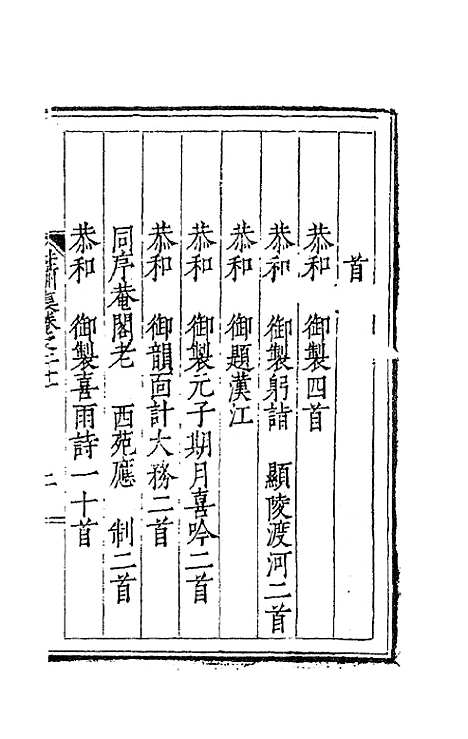 首
恭和　御製四首
恭和　御製躬詣　顯陵渡河二首
恭和　御題漢江
恭和　御製元子期月喜吟二首
恭和　御韻面計大務二首
同序菴閣老　西苑應　制二首
恭和　御製喜雨詩一十首
集卷之二十